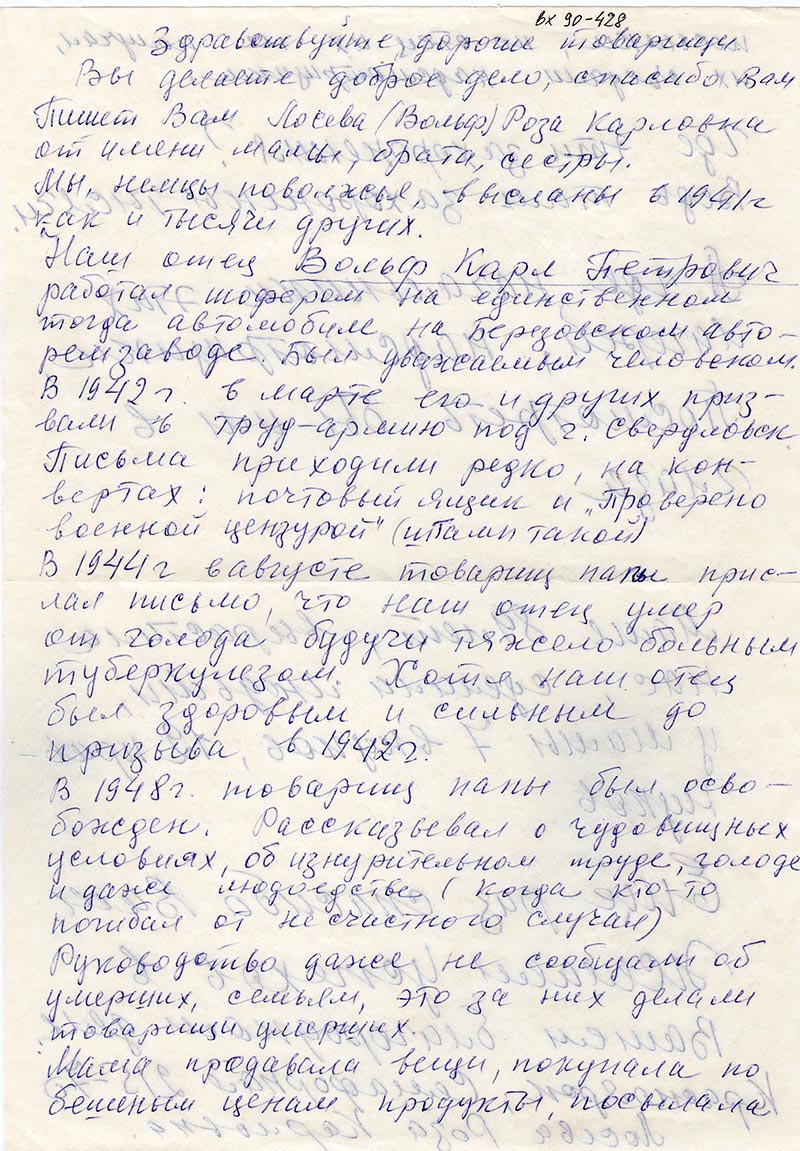 вх 90-428
Здравствуйте, дорогие товарищи
Вы делаете доброе дело, спасибо Вам
Пишет Вам Лосева (Вольф) Роза Карловна
от имени мамы, брата, сестры.
Мы, немцы поволжья, высланы в 1941г
как и тысячи других.
Наш отец Вольф Карл Петрович
работал шофером на единственном
тогда автомобиле на Березовском авто-
ремзаводе. Был уважаемым человеком.
В 1942г. в марте его и других приз-
вали в труд-армию под г. Свердловск.
Письма приходили редко, на кон-
вертах: почтовый ящик и „Проверено
военной цензурой" (штамп такой)
В 1944г в августе товарищ папы прис-
лал письмо, что наш отец умер
от голода будучи тяжело больным
туберкулезом. Хотя наш отец
был здоровым и сильным до
призыва в 1942г.
В 1948г. товарищ папы был осво-
божден. Рассказывал о чудовищных
условиях, об изнурительном труде, голоде
и даже людоедстве (когда кто-то
погибал от несчастного случая)
Руководство даже не сообщали об
умерших, семьям, это за них делали
товарищи умерших.
Мама продавала вещи, покупала по
бешеным ценам продукты, посылала